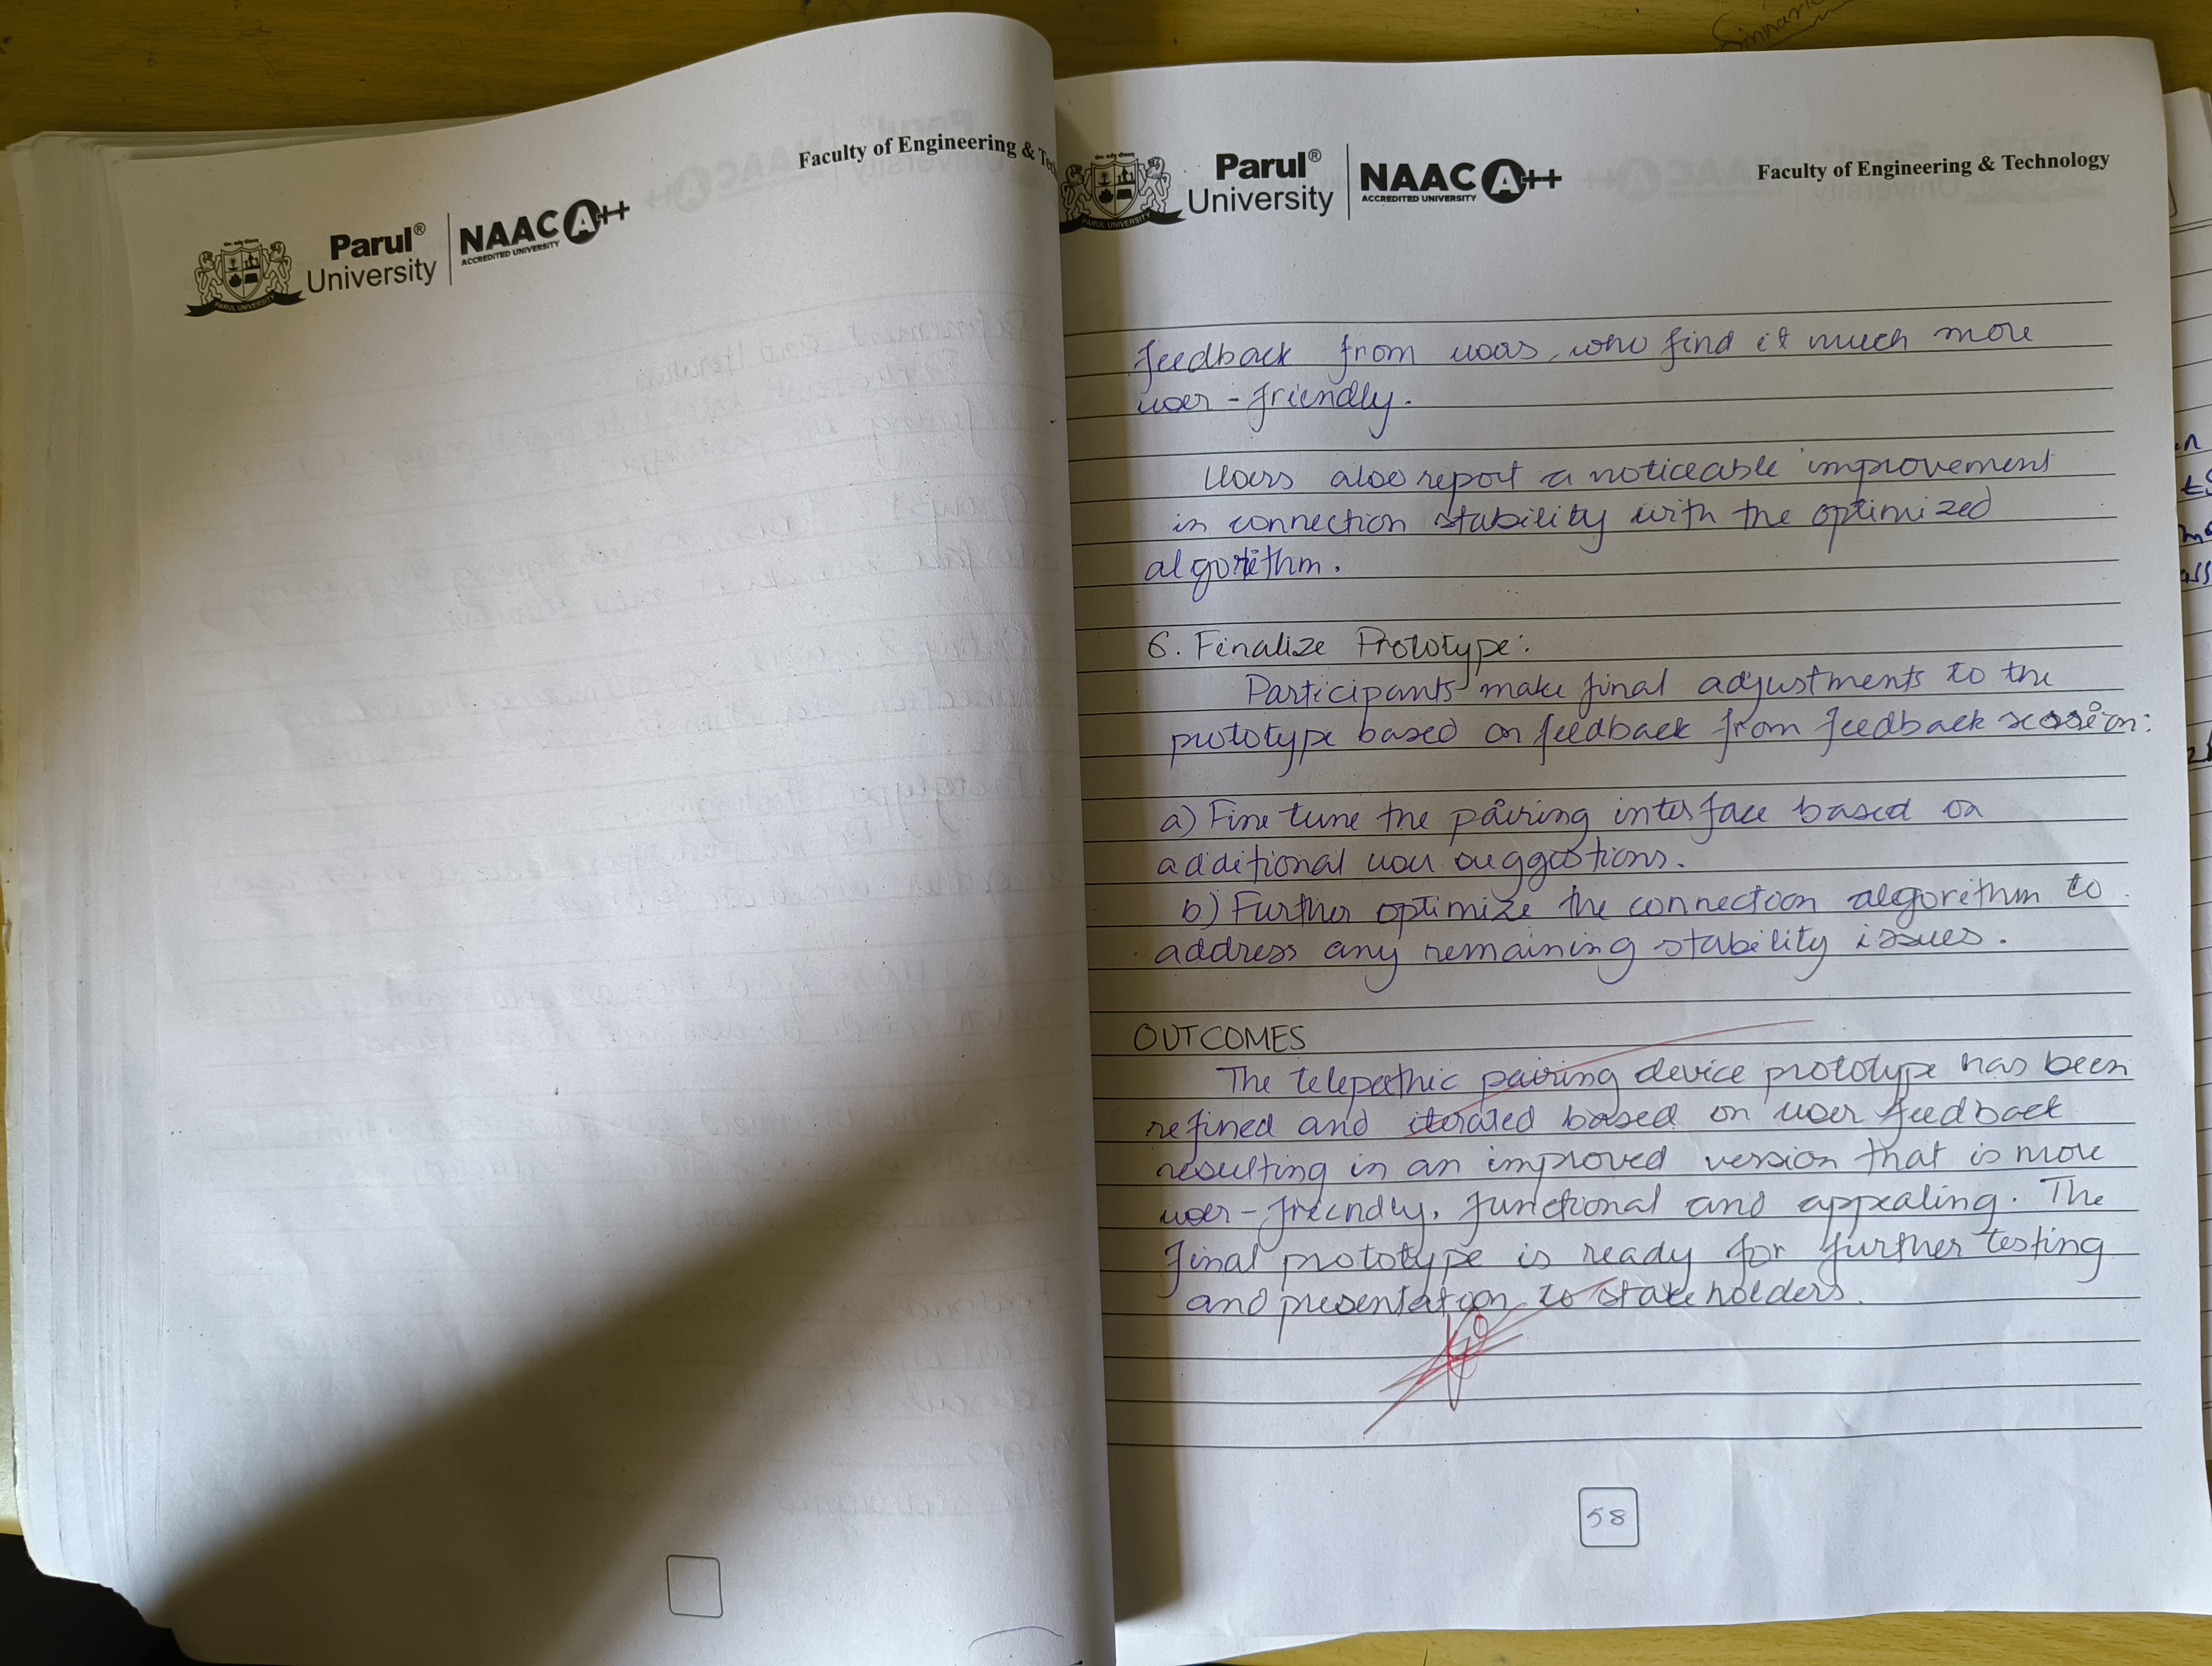 Faculty of Engineering & Tec
Parul®
University
NAAC A++
ACCREDITED UNIVERSITY
PARUL UNIVERSITY
Parul®
University
NAAC A++
ACCREDITED UNIVERSITY
PARUL UNIVERSITY
Faculty of Engineering & Technology
feedback from users, who find it much more
user-friendly.
Users also report a noticeable improvement
in connection stability with the optimized
algorithm.
6. Finalize Prototype:
Participants make final adjustments to the
prototype based on feedback from feedback session:
a) Fine tune the pairing interface based on
additional user suggestions.
b) Further optimize the connection algorithm to
address any remaining stability issues.
OUTCOMES
The telepathic pairing device prototype has been
refined and iterated based on user feedback
resulting in an improved version that is more
user-friendly, functional and appealing. The
final prototype is ready for further testing
and presentation to stakeholders.
58